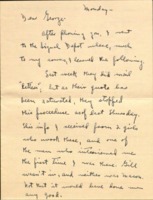 Monday -
Dear George -
After phoning you, I went
to the Signal Depot where, much
to my sorrow, learned the following
Last week they had mail
"letters", but as their quota has
been saturated, they stopped
this procedure as of last Thursday.
This info I received from 2 girls
who work there, and one of
the men who interviewed me
the first time I was there. Bill
wasn't in, and neither was Mason.
Not that it would have done me
any good.